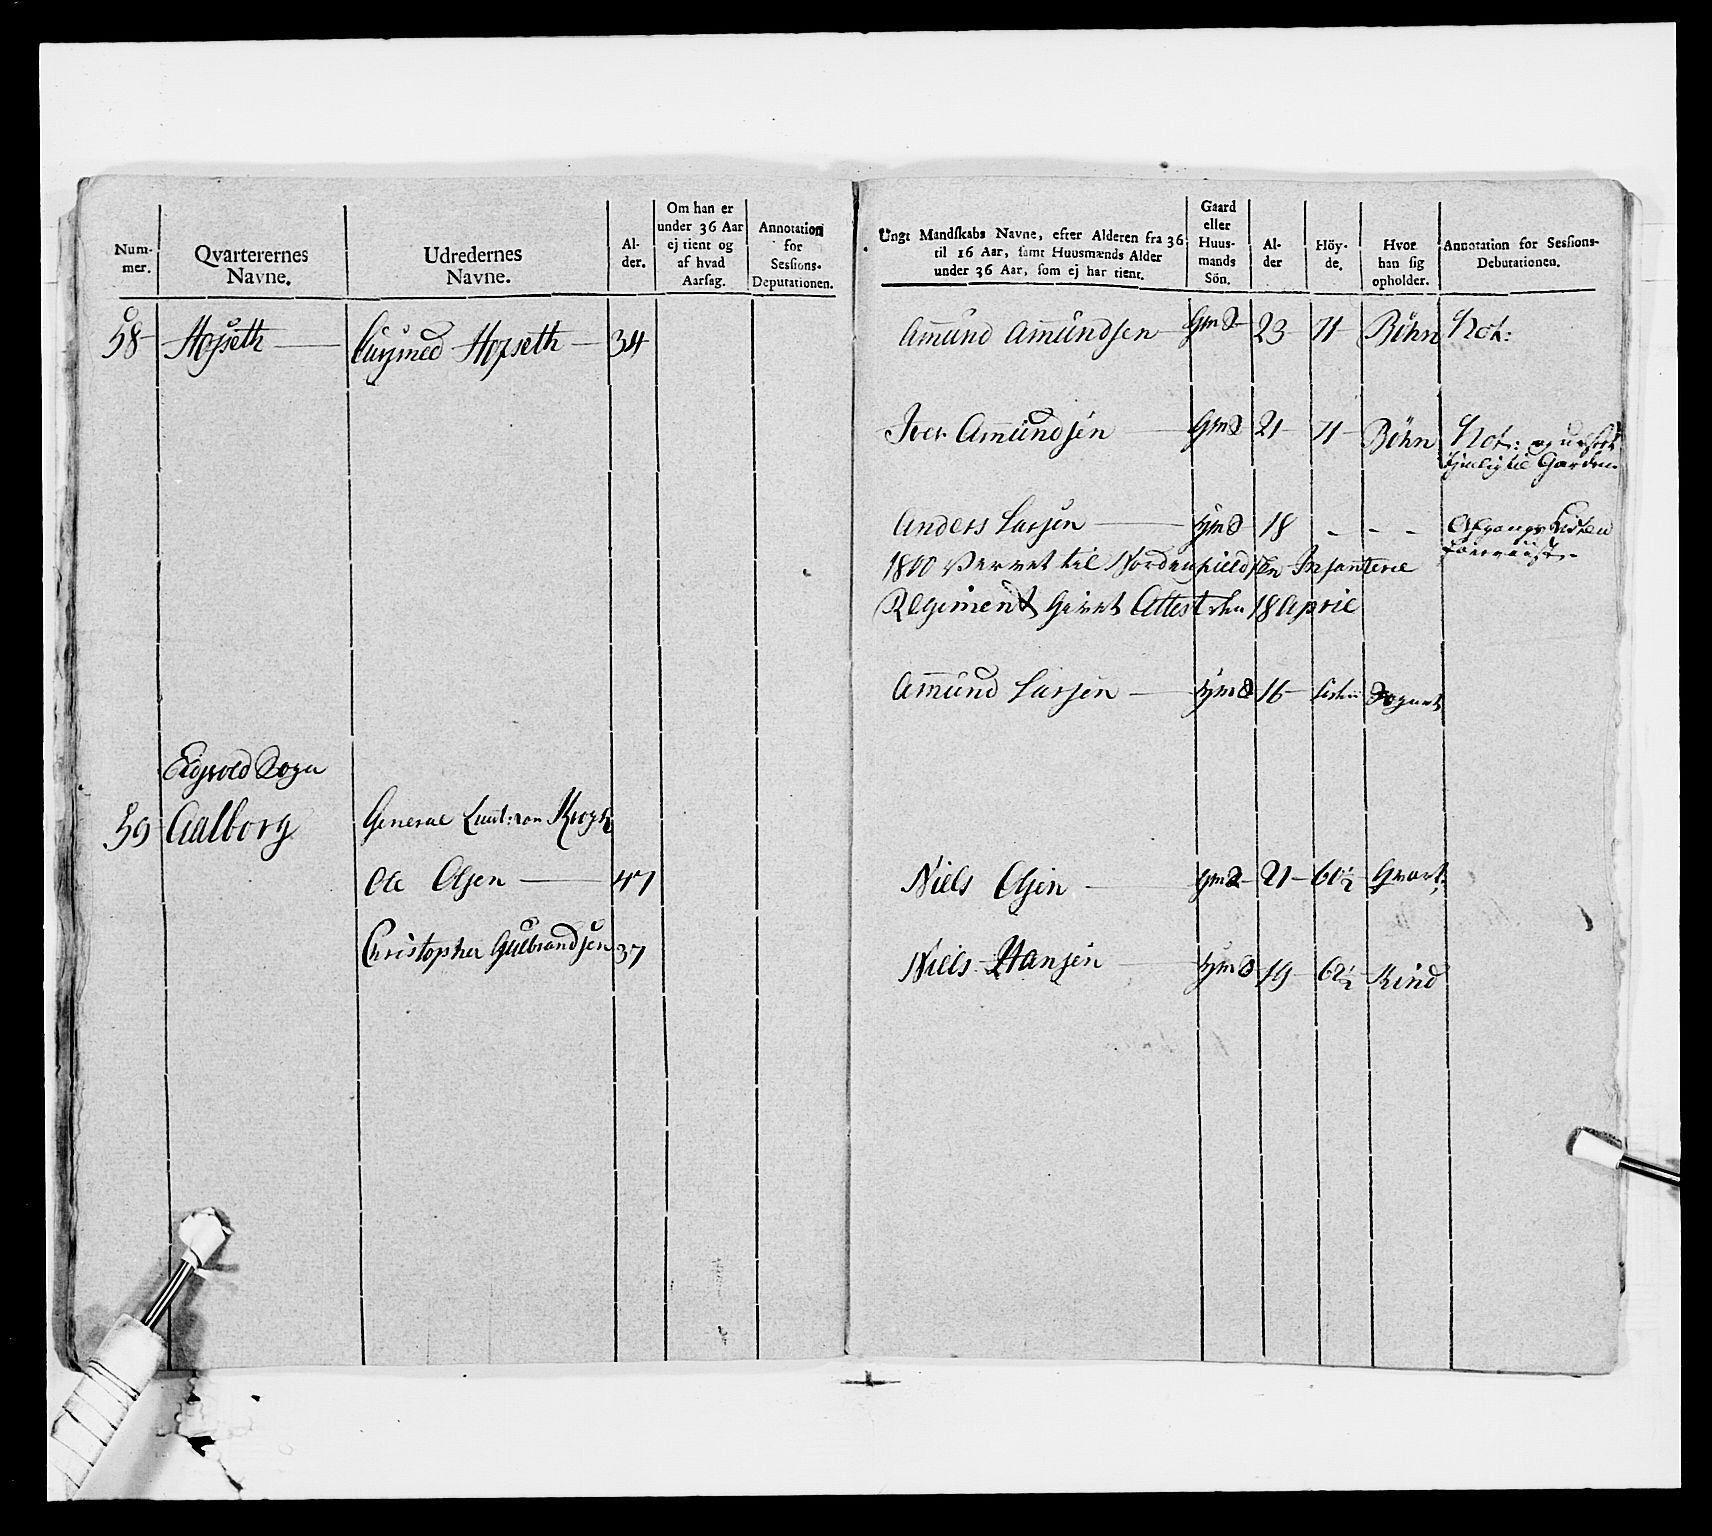 Num-
mer.
Qvarterernes
Navne.
Udredernes
Navne.
Al-
der.
Om han er
under 36 Aar
ej tient og
af hvad
Aarsag.
Annotation
for
Sessions-
Deputationen.
58 Hofseth Hofseth 34
Eidsvold Sogn
59 Aalborg General Lieut: von Krogh
Ole Olsen 47
Christopher Gulbrandsen 37
Ungt Mandskabs Navne, efter Alderen fra 36
til 16 Aar, samt Huusmænds Alder
under 36 Aar, som ej har tient.
Gaard
eller
Huus-
mands
Sön.
Al-
der
Höy-
de.
Hvor
han sig
opholder.
Annotation for Sessions-
Debutationen.
Amund Amundsen 23 Böhn Not:
Iver Amundsen 21 Böhn Not:
tjenlig til Garden
Anders Larsen 18 - - -
1800 til Nordenfieldsken Infanterie
Regiment Givet Attest den 18 April
Amund Larsen 16
Niels Olsen 21 60½ Qvart:
Niels Hansen 19 62½ Kind